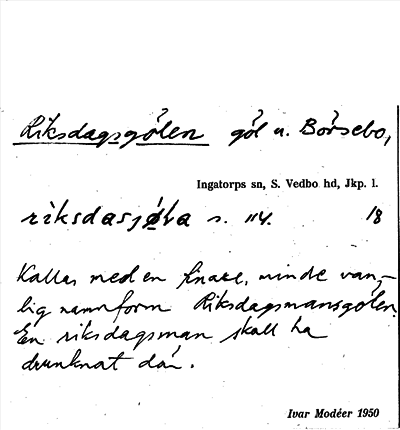 Riksdagsgölen göl u. Börsebo,
Ingatorps sn, S. Vedbo hd, Jkp. l.
riksdasjøla s. 114. 18
Kallas med en finare, mindre van-
lig namnform Riksdagsmansgölen.
En riksdagsman skall ha
drunknat där.
Ivar Modéer 1950